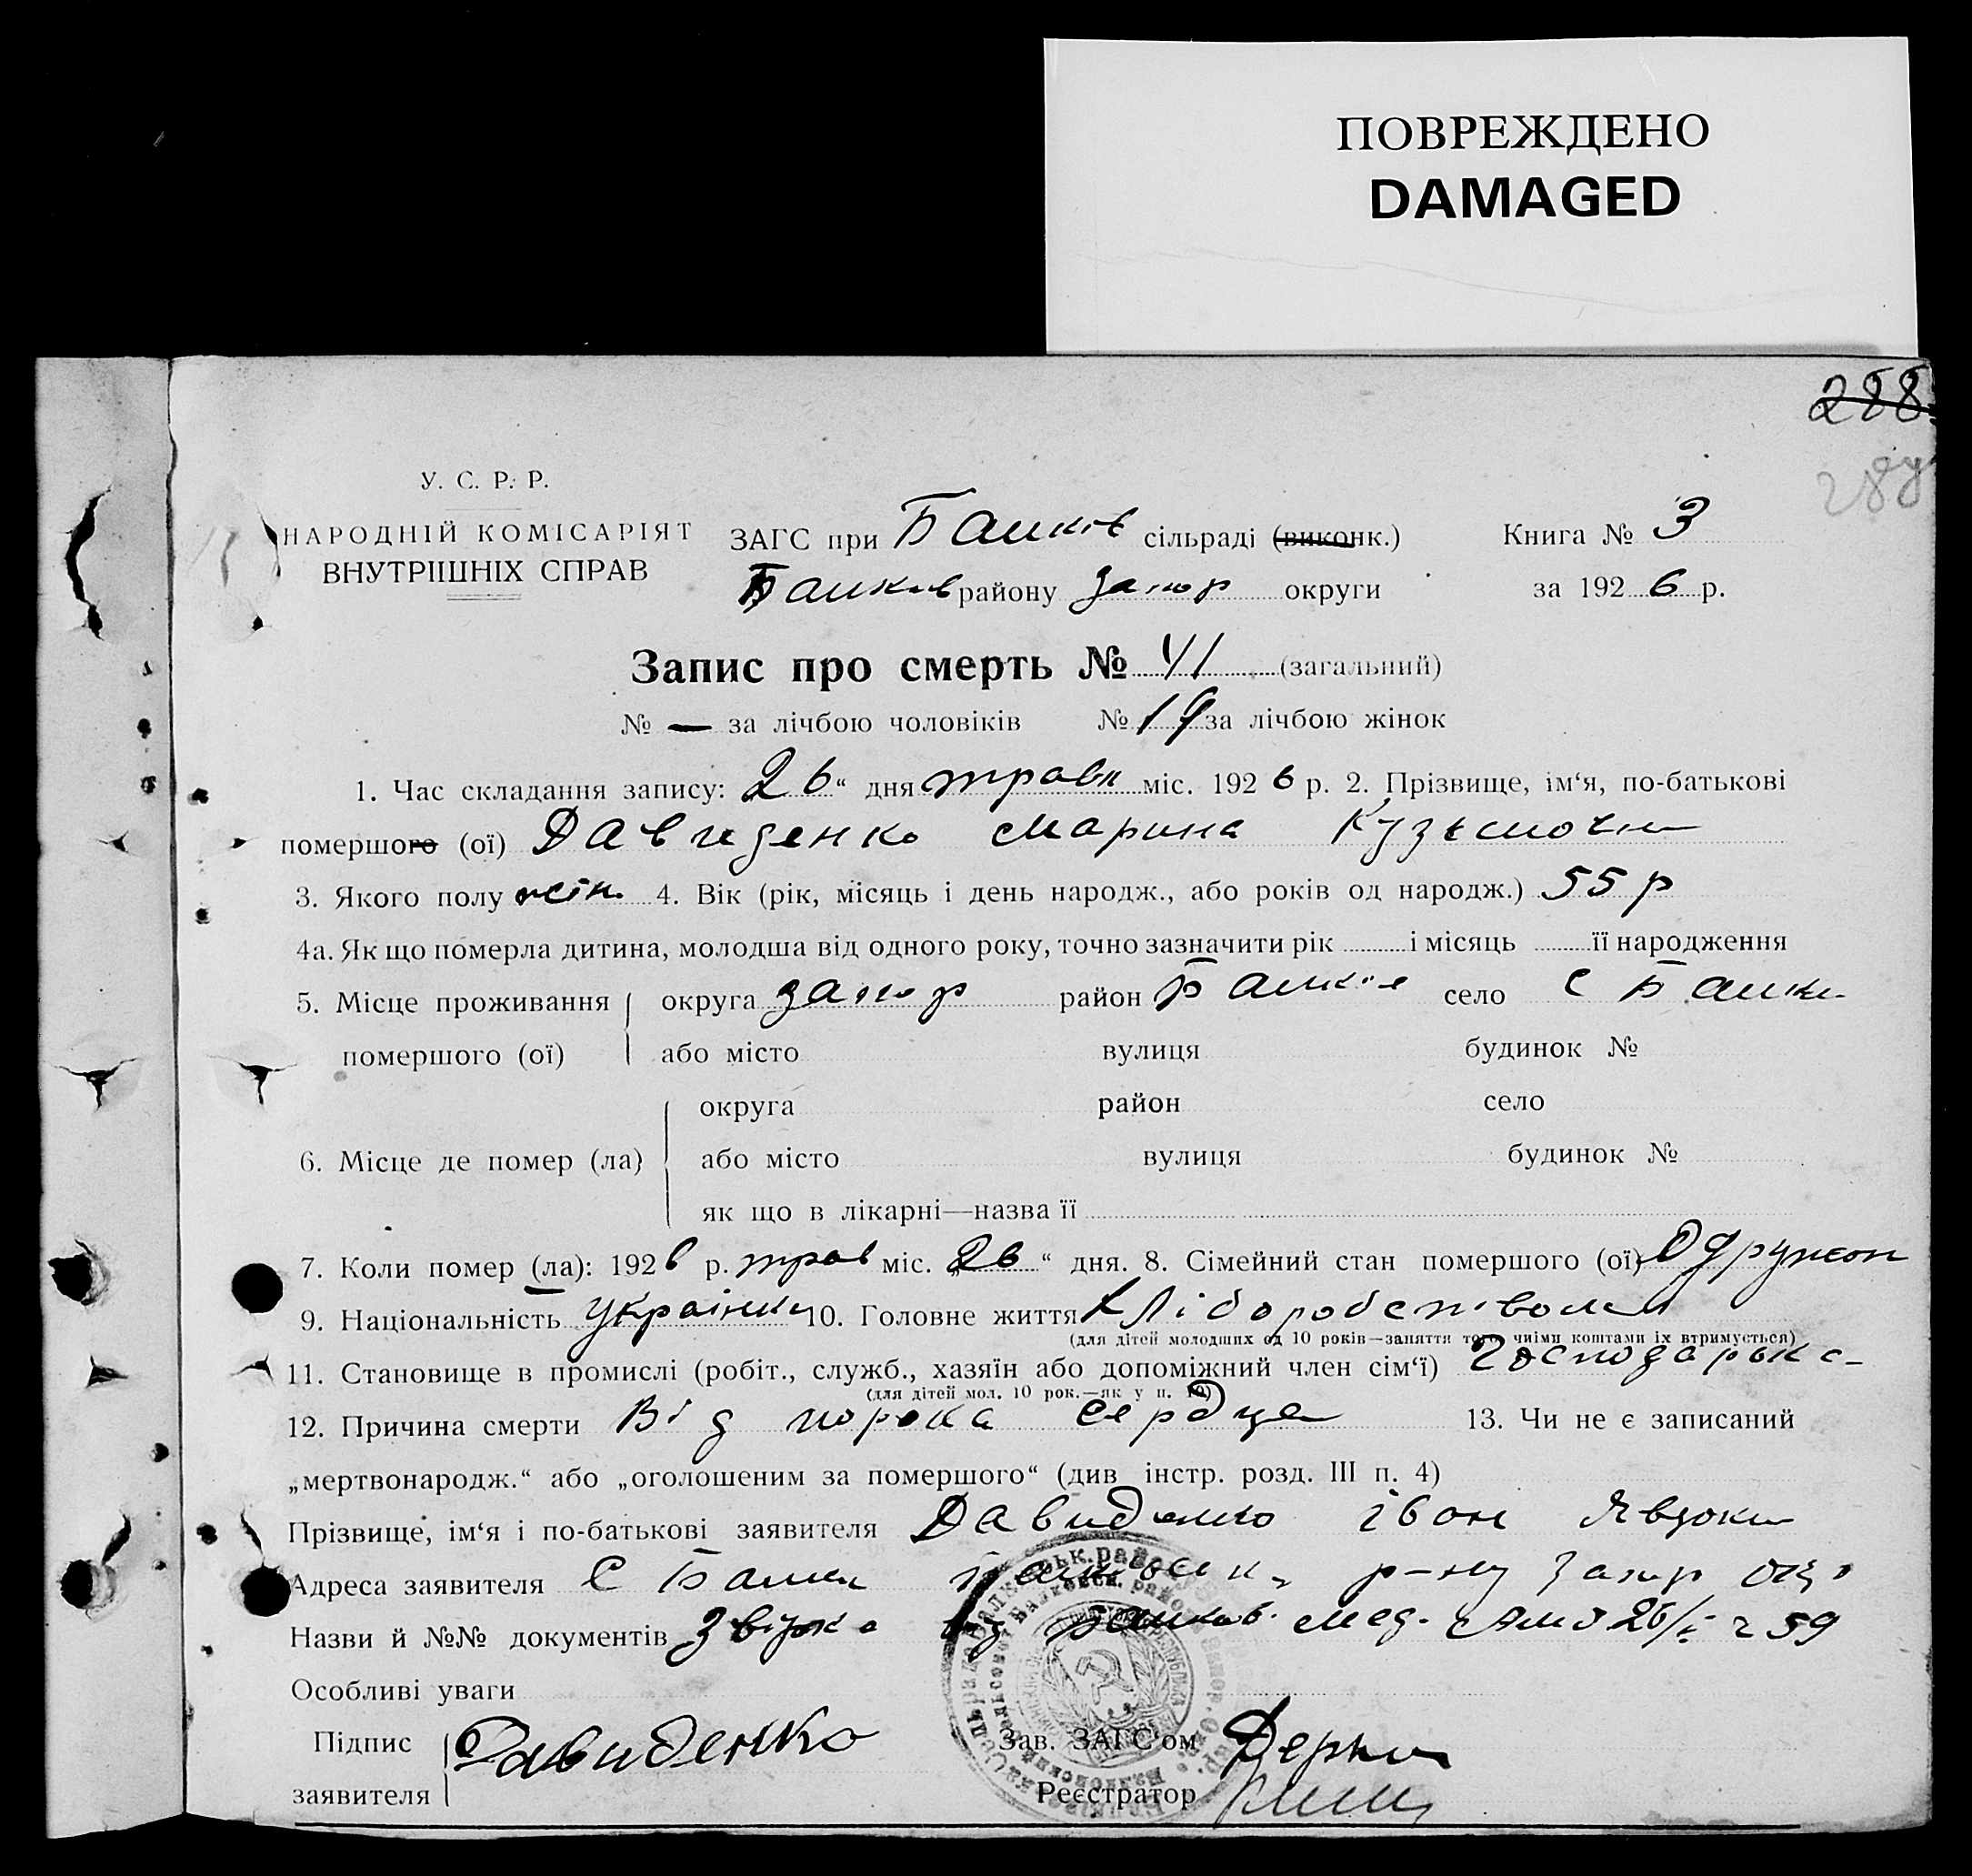 ПОВРЕЖДЕНО
DAMAGED
288
У. С. Р. Р.
НАРОДНІЙ КОМІСАРІЯТ
ВНУТРІШНІХ СПРАВ
ЗАГС при Балків сільраді (виконк.) Книга № 3
Балків району Запор округи за 1926 р.
Запис про смерть № 41 (загальний)
№ — за лічбою чоловіків № 19 за лічбою жінок
1. Час складання запису: „26“ дня травн міс. 1926 р. 2. Прізвище, ім‘я, по-батькові
помершого (ої) Давиденко Марина Кузьмовна
3. Якого полу жін. 4. Вік (рік, місяць і день народж., або років од народж.) 55 р
4а. Як що померла дитина, молодша від одного року, точно зазначити рік і місяць її народження
5. Місце проживання округа Запор район Балків село С Балки
помершого (ої) або місто вулиця будинок №
округа район село
6. Місце де помер (ла) або місто вулиця будинок №
як що в лікарні—назва її
7. Коли помер (ла): 1926 р. трав міс. „26“ дня. 8. Сімейний стан помершого (ої) Одружон
9. Національність Українка 10. Головне життя Хліборобством
(для дітей молодших од 10 років—заняття того, чиїми коштами їх втримується)
11. Становище в промислі (робіт., служб., хазяїн або допоміжний член сім‘ї) Господарька
(для дітей мол. 10 рок.—як у п. 10)
12. Причина смерти Від порока сердца 13. Чи не є записаний
„мертвонародж.“ або „оголошеним за помершого“ (див інстр. розд. III п. 4)
Прізвище, ім‘я і по-батькові заявителя Давиденко Іван
Адреса заявителя С Балки р-ну Запор окр
Назви й №№ документів від Балків. мед. 26/V 59
Особливі уваги
Підпис Давиденко Зав. ЗАГС‘ом
заявителя Реєстратор